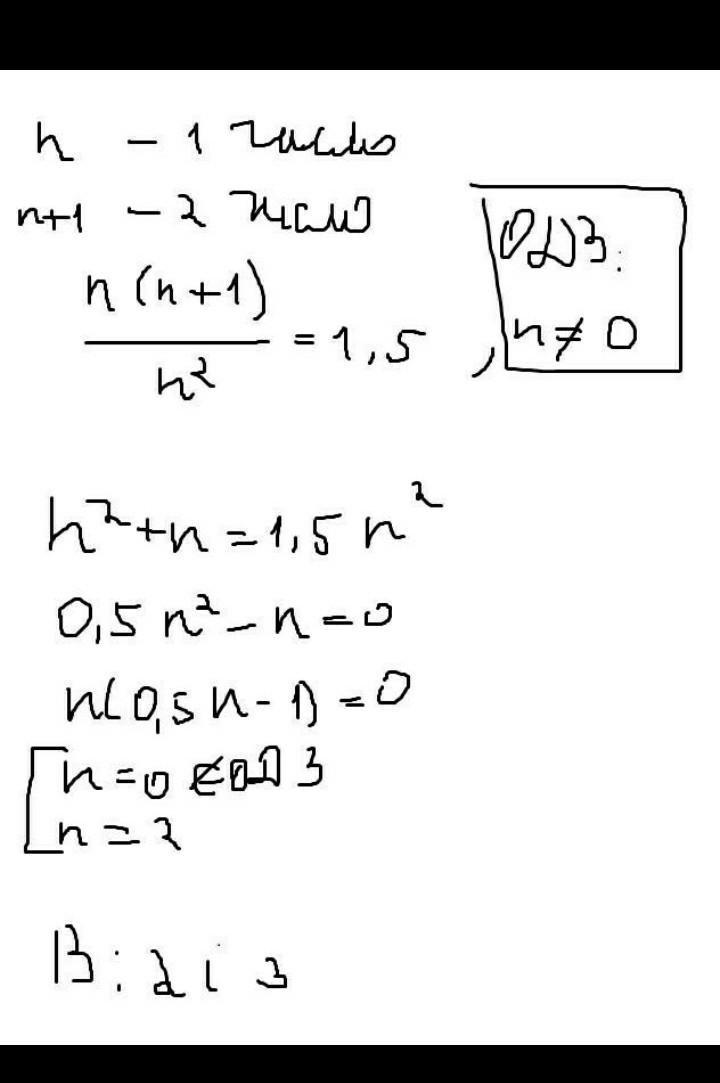 n – 1 число
n+1 – 2 число
n (n+1) / n² = 1,5 ,
ОДЗ:
n ≠ 0
n² + n = 1,5 n²
0,5 n² – n = 0
n(0,5 n - 1) = 0
[ n = 0 ∉ ОДЗ
n = 2
В: 2 і 3